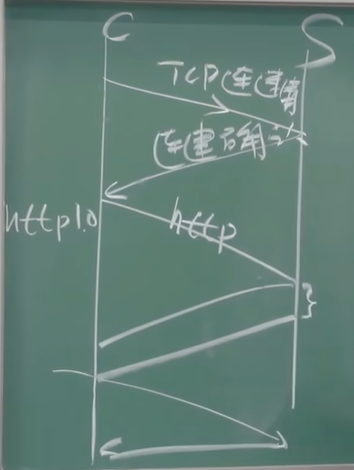 C S
TCP连建请
连建确认
http1.0
http